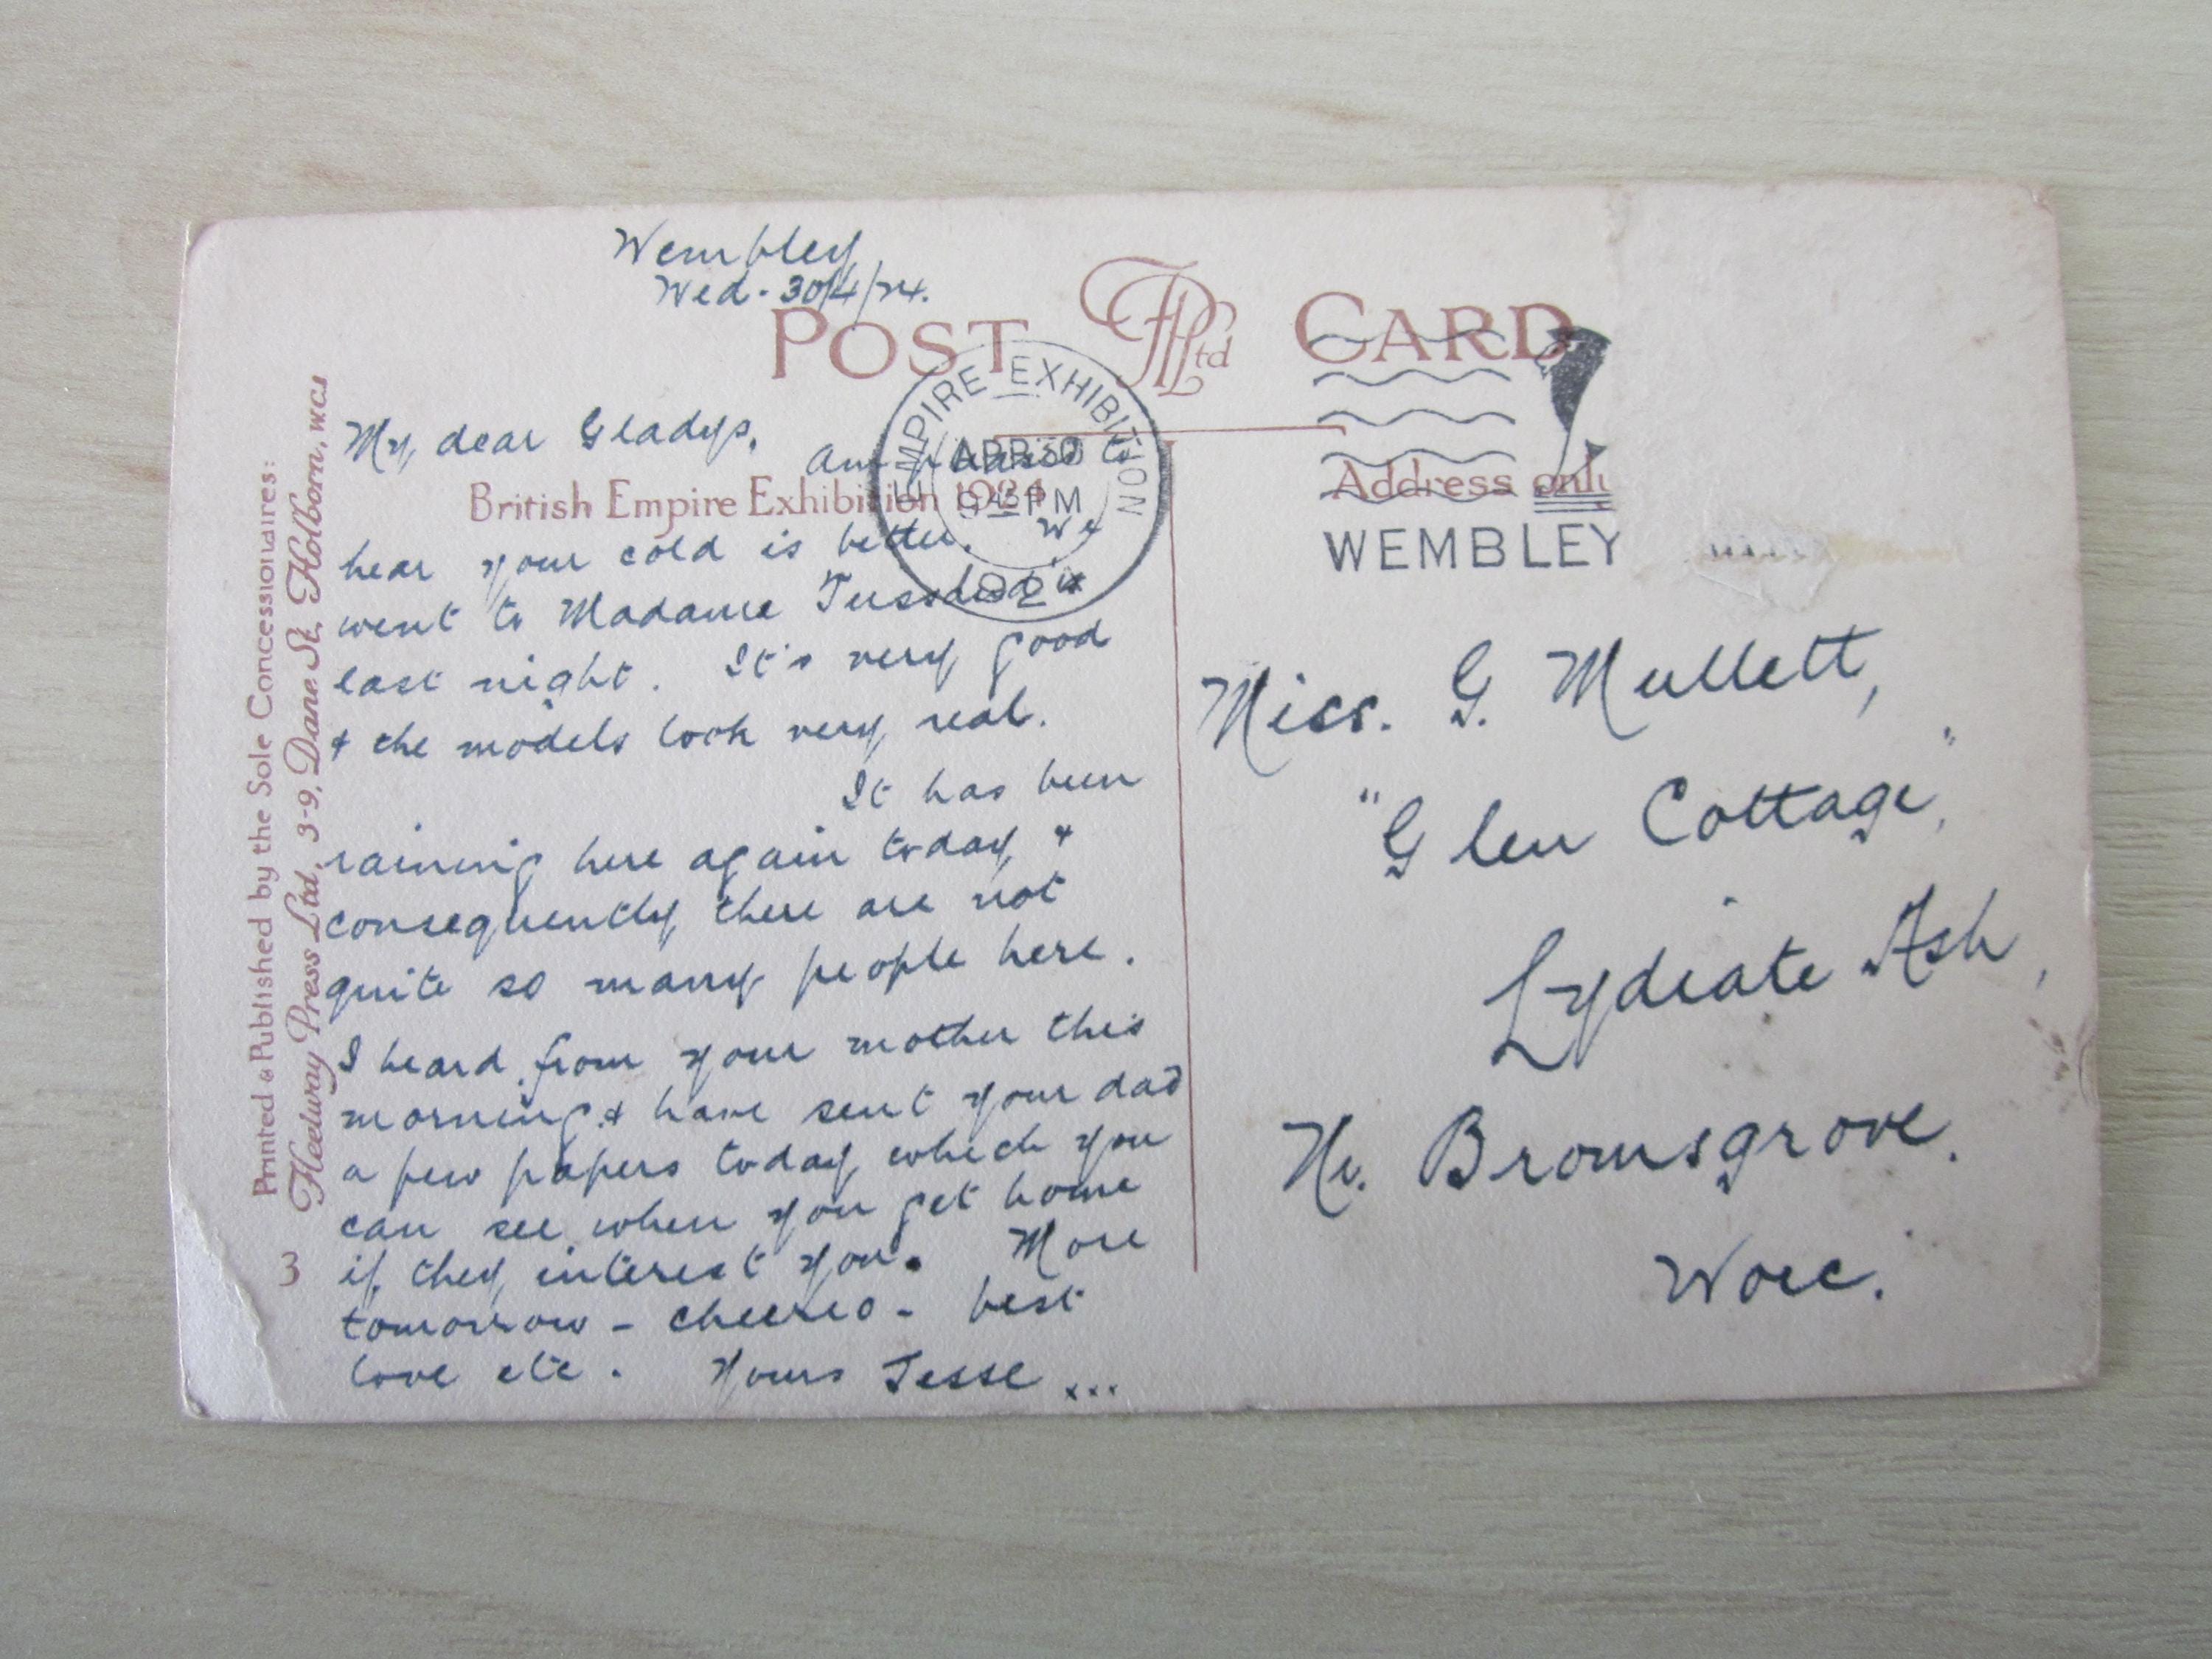 Wembley
Wed. 30/4/24.
POST CARD
Ltd
My dear Gladys,
Am pleased to
British Empire Exhibition 1924
hear your cold is better. We
went to Madame Tussaud's
last night. It's very good
& the models look very real.
It has been
raining here again today &
consequently there are not
quite so many people here.
I heard from your mother this
morning & have sent your dad
a few papers today which you
can see when you get home
if they interest you. More
tomorrow - cheerio - best
love etc. Yours Jesse ...
EMPIRE EXHIBITION
APR 30
9 45 PM
192
WEMBLEY
Address only
Miss. G. Mullett,
"Glen Cottage",
Lydiate Ash,
Nr. Bromsgrove.
Worc.
Printed & Published by the Sole Concessionaires:
Fleetway Press Ltd, 3-9, Dane St. Holborn, W.C.1
3